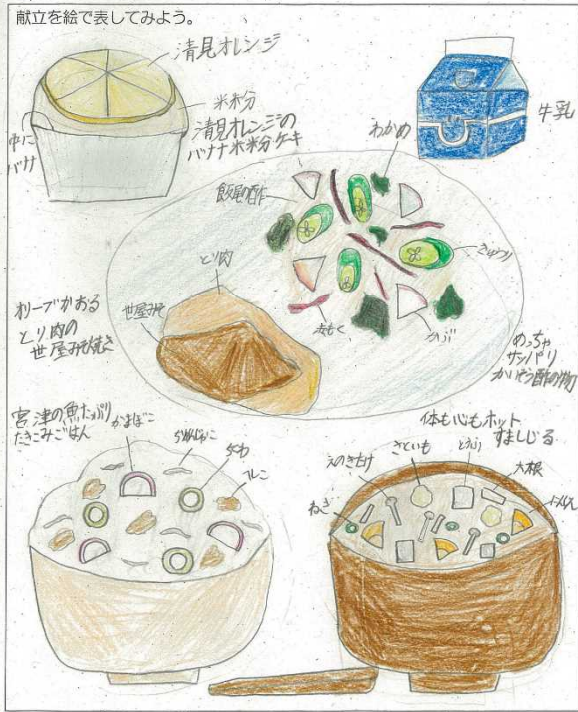 献立を絵で表してみよう。
清見オレンジ
米粉
中に
バナナ
清見オレンジの
バナナ米粉ケーキ
牛乳
わかめ
飯尾の酢
きゅうり
かぶ
とり肉
世屋みそ
オリーブかおる
とり肉の
世屋みそ焼き
めっちゃ
サッパリ
かいそう酢の物
宮津の魚たっぷり
たきこみごはん
かまぼこ
ちりめんじゃこ
ちくわ
体も心もホット
すましじる
えのきたけ
さといも
とうふ
大根
にんじん
ねぎ